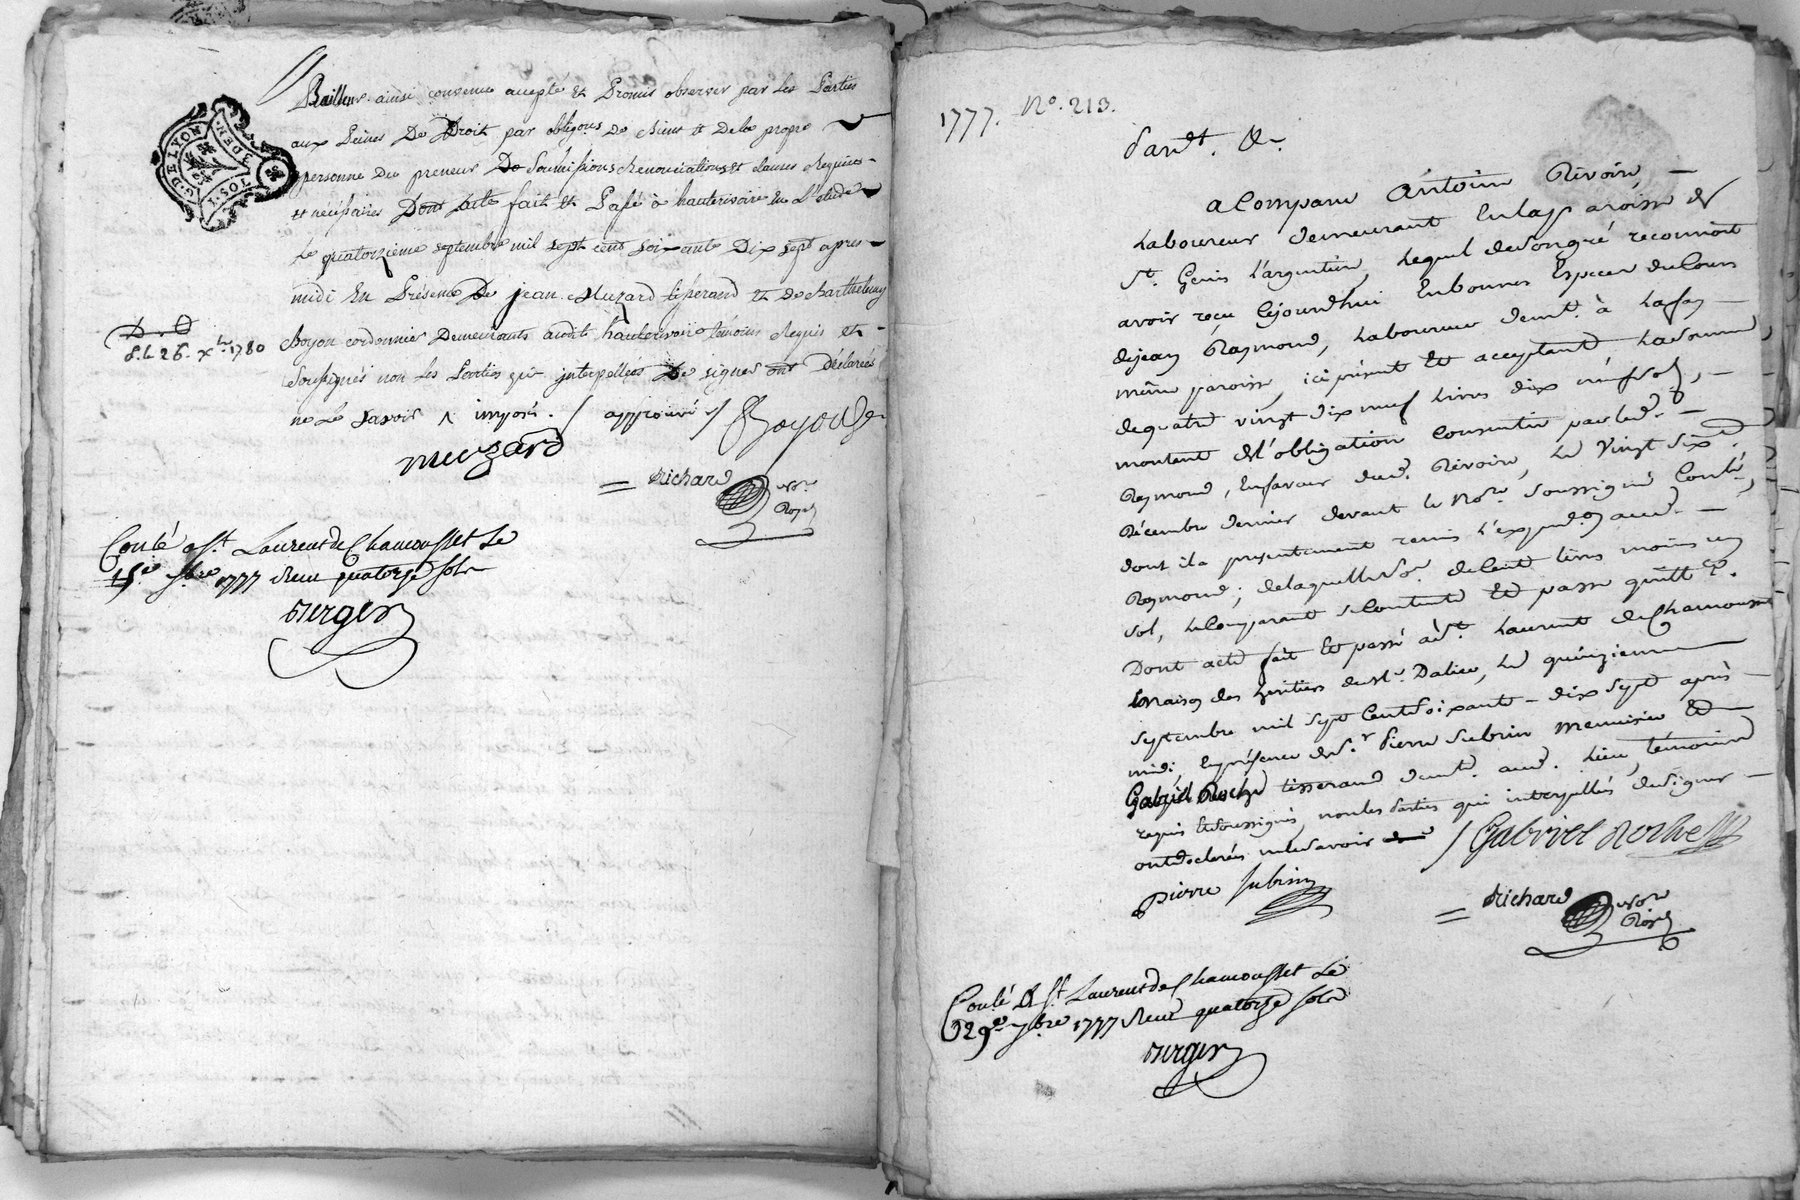 G. DE LYON
3 DEN. TOS. 1
Bailleur ainsi convenu accepté et Promis observer par les Parties
aux Peines De Droit par obligons de biens et de la propre
personne du preneur De Soumissions Renonciations et clauses Requises
et nécessaires Dont acte fait et Passé à hauterivoire en L'étude
Le quatorzieme septembre mil sept cent soixante Dix sept apres
midi En Présence De jean Muzard tisserand et de Barthelemy
D. d.
d. le 26. xbre 1780
Boyon cordonnier Demeurants audit hauterivoire témoins Requis et
Soussignés non les Parties qui interpellées De signer ont Déclarées
ne Le Savoir imposé. / approuvé /
muzard
Richard
Nore
Royal
Conlé a St. Laurent de Chamousset Le
15e 7bre 1777 Reçu quatorze sols
Durger
1777. No. 213.
Pardt. &.
a Comparu Antoine Rivoire
Laboureur demeurant En la paroisse de
St. Genis l'argentiere, Lequel de son gré reconnoit
avoir reçu Cejourdhui En bonnes Especes du Cours
de jean Raymond, Laboureur demt. à La fay
même paroisse, ici présent et acceptant La somme
de quatre vingt dix neuf Livres dix neuf sols,
montant de l'obligation Consentie par led.
Reymond, En faveur dud. Rivoire, Le Vingt six
Décembre dernier devant le Nore. soussigné Conlé,
dont il a presentement remis l'expedon aud.
Reymond; de laquelle so. de Cent livres moins un
sol, Le Comparant se Contente et passe quittce.
Dont acte fait et passé à St. Laurent de Chamousset
maison des heritiers du Sr. Dalieu, Le quinzieme
septembre mil sept Cent soixante-dix sept après
midi En présence de Sr. Pierre Subrin Menuisier et
Gabriel Roche tisserand demts. aud. Lieu, témoins
requis et soussignés, non les Parties qui interpellées de signer
ont declarées ne le savoir
Gabriel Roche
Pierre Subrin
Richard
Nore
Royal
Conlé A St. Laurent de Chamousset Le
29e 7bre 1777 Reçu quatorze sols
Durger